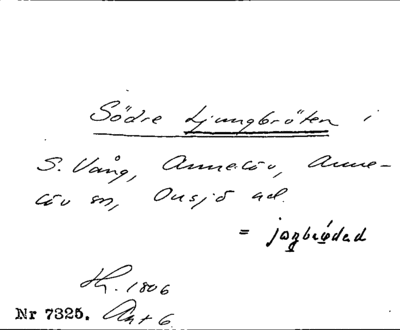 Södre Ljungbröten i
S. Vång, Annelöv, Anne-
löv sn, Onsjö hd.
= jɷŋbrǿded
Hh. 1806
Nr 7325. Akt 6